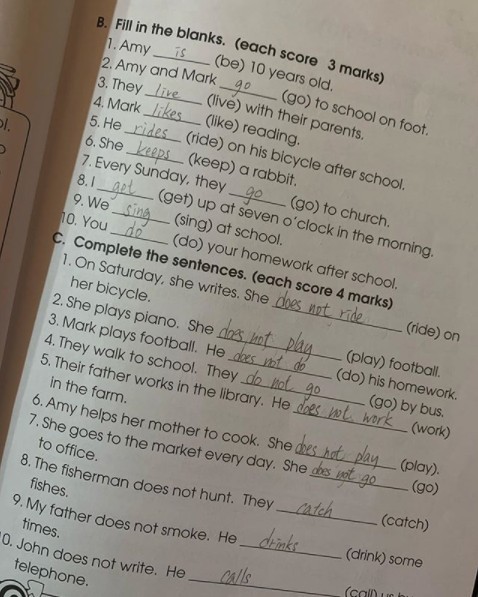 B. Fill in the blanks. (each score 3 marks)
1. Amy is (be) 10 years old.
2. Amy and Mark go (go) to school on foot.
3. They live (live) with their parents.
4. Mark likes (like) reading.
5. He rides (ride) on his bicycle after school.
6. She keeps (keep) a rabbit.
7. Every Sunday, they go (go) to church.
8. I get (get) up at seven o'clock in the morning.
9. We sing (sing) at school.
10. You do (do) your homework after school.
C. Complete the sentences. (each score 4 marks)
1. On Saturday, she writes. She does not ride (ride) on
her bicycle.
2. She plays piano. She does not play (play) football.
3. Mark plays football. He does not do (do) his homework.
4. They walk to school. They do not go (go) by bus.
5. Their father works in the library. He does not work (work)
in the farm.
6. Amy helps her mother to cook. She does not play (play).
7. She goes to the market every day. She does not go (go)
to office.
8. The fisherman does not hunt. They catch (catch)
fishes.
9. My father does not smoke. He drinks (drink) some
times.
0. John does not write. He calls (call)
telephone.